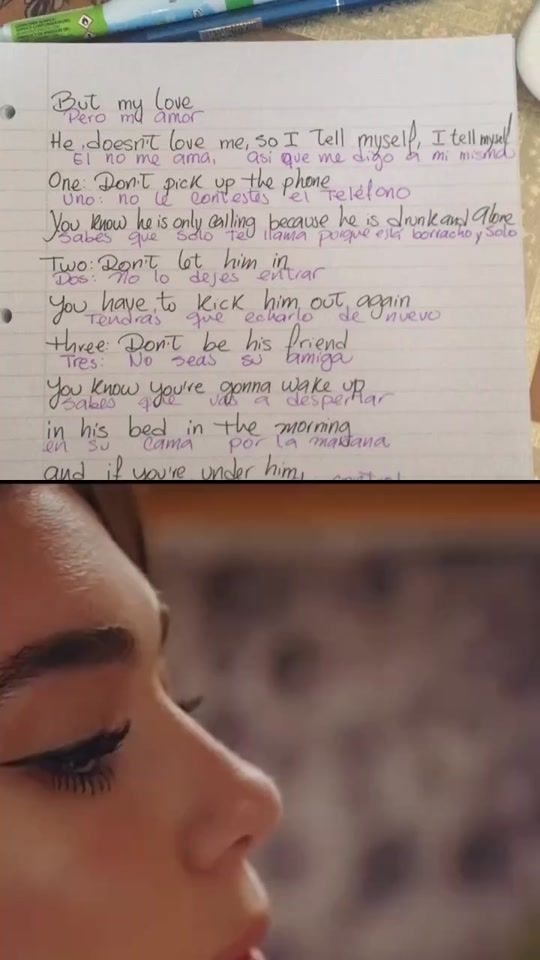 But my love
Pero my amor
He doesn't love me, so I Tell myself, I tell myself
El no me ama, asi que me digo a mi misma
One: Don't pick up the phone
Uno: no le contestes el Teléfono
You know he is only calling because he is drunk and alone
Sabes que solo te llama porque está borracho y solo
Two: Don't let him in
Dos: No lo dejes entrar
You have to kick him out again
Tendras que echarlo de nuevo
three: Don't be his friend
Tres: No seas su amiga
You know you're gonna wake up
Sabes que vas a despertar
in his bed in the morning
en su cama por la mañana
and if you're under him,